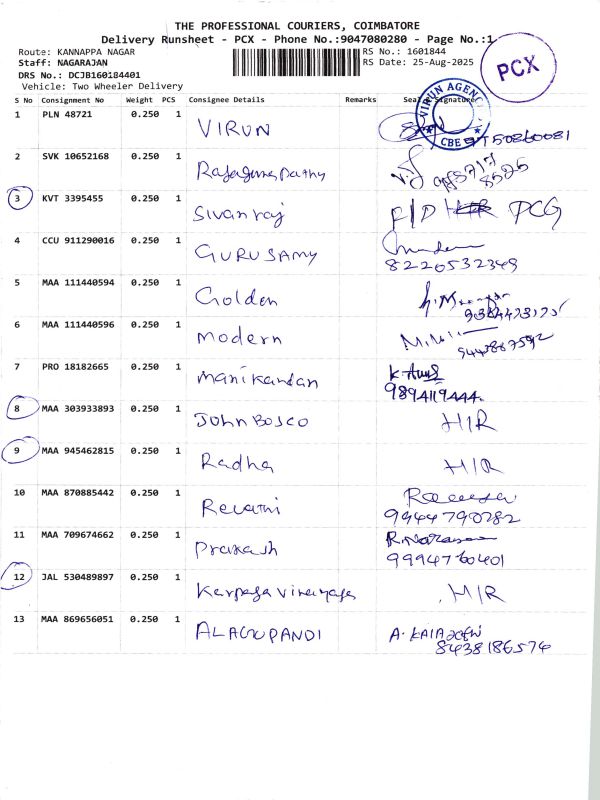 THE PROFESSIONAL COURIERS, COIMBATORE
Delivery Runsheet - PCX - Phone No.:9047080280 - Page No.:1
Route: KANNAPPA NAGAR RS No.: 1601844
Staff: NAGARAJAN RS Date: 25-Aug-2025
DRS No.: DCJB160184401
Vehicle: Two Wheeler Delivery
PCX
S No Consignment No Weight PCS Consignee Details Remarks Seal Signature
VIRUN AGENC
CBE
1 PLN 48721 0.250 1 VIRUN
2 SVK 10652168 0.250 1
3 KVT 3395455 0.250 1 Sivanraj F/D PCG
4 CCU 911290016 0.250 1 GURUSAMY
8220532349
5 MAA 111440594 0.250 1 Golden
6 MAA 111440596 0.250 1 Modern
7 PRO 18182665 0.250 1 Manikandan
9894119444
8 MAA 303933893 0.250 1 John BOSCO H/R
9 MAA 945462815 0.250 1 Radha H/R
10 MAA 870885442 0.250 1 Revathi
9944790282
11 MAA 709674662 0.250 1 Prakash
9994760401
12 JAL 530489897 0.250 1 H/R
13 MAA 869656051 0.250 1 ALAGUPANDI
8438186574